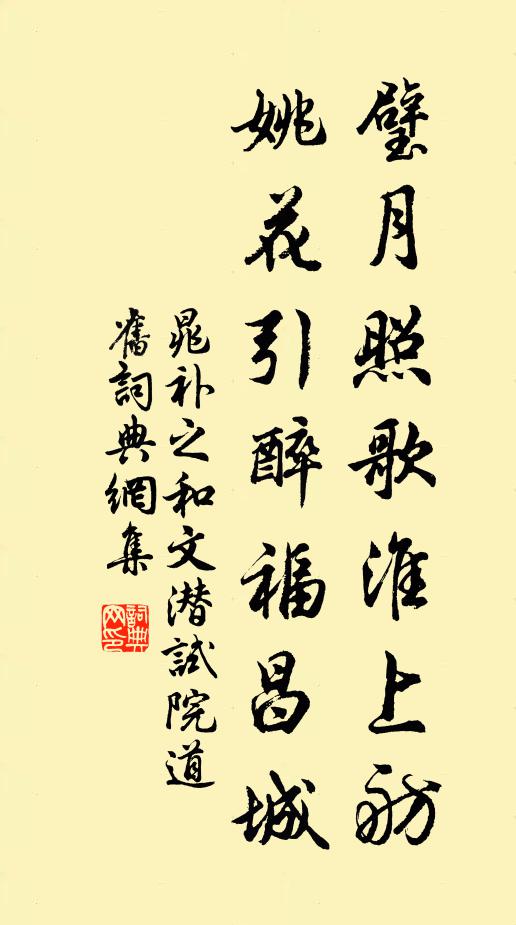 璧月照歌淮上舫
姚花引醉福昌城
晁补之和文潜試院道
舊詞典網集
詞典网印